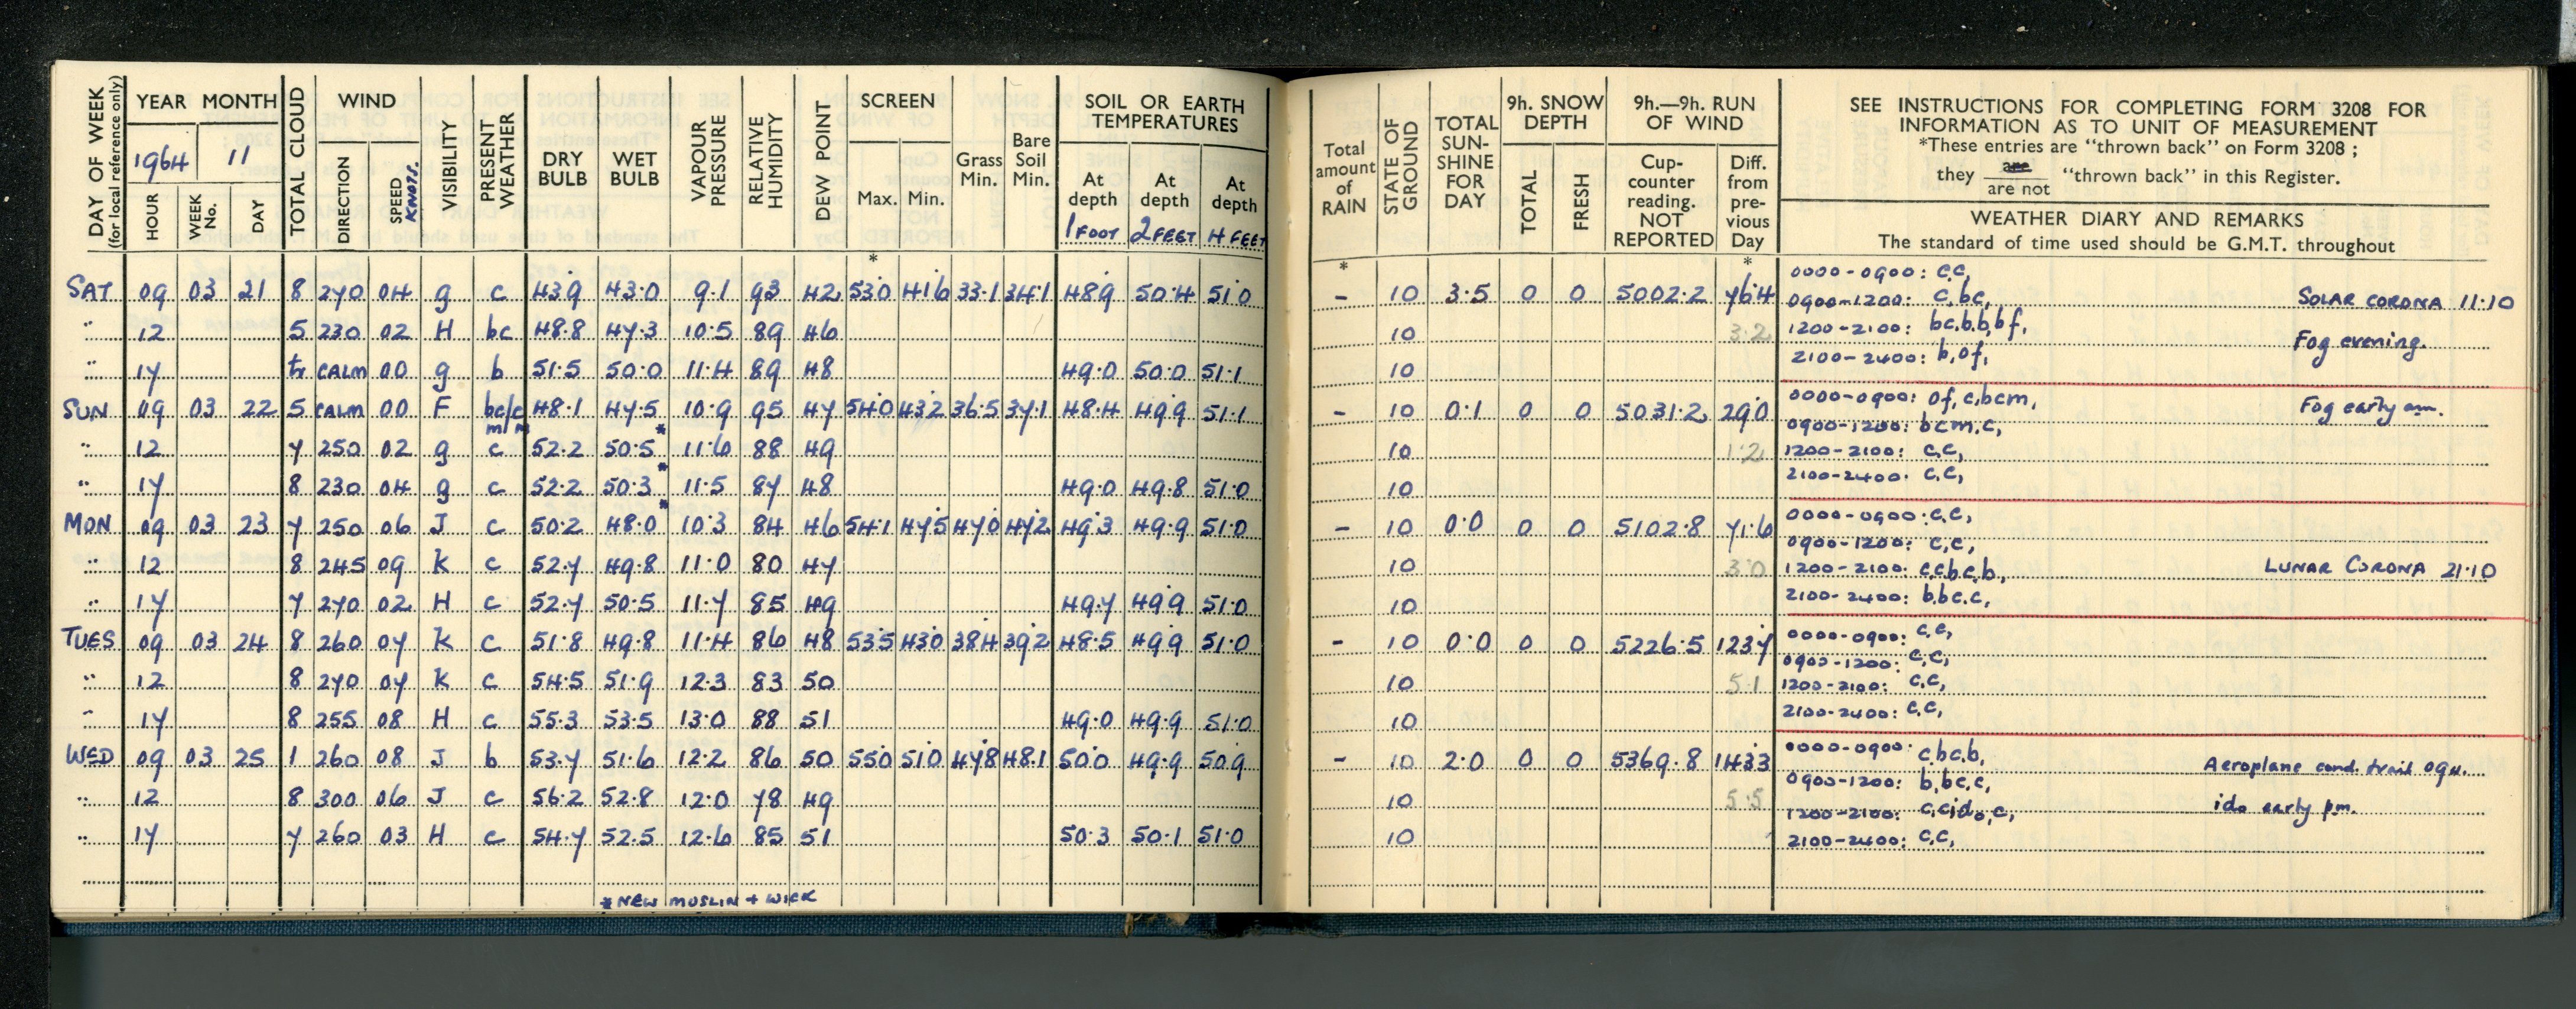 DAY OF WEEK (for local reference only)
YEAR MONTH
1964 11
HOUR WEEK No. DAY
TOTAL CLOUD
WIND
DIRECTION SPEED KNOTS.
VISIBILITY
PRESENT WEATHER
DRY BULB
WET BULB
VAPOUR PRESSURE
RELATIVE HUMIDITY
DEW POINT
SCREEN
Max. Min.
Grass Min.
Bare Soil Min.
SOIL OR EARTH TEMPERATURES
At depth 1 FOOT
At depth 2 FEET
At depth 4 FEET
Total amount of RAIN
STATE OF GROUND
TOTAL SUN-SHINE FOR DAY
9h. SNOW DEPTH
TOTAL FRESH
9h.—9h. RUN OF WIND
Cup-counter reading. NOT REPORTED
Diff. from pre-vious Day
SEE INSTRUCTIONS FOR COMPLETING FORM 3208 FOR
INFORMATION AS TO UNIT OF MEASUREMENT
*These entries are "thrown back" on Form 3208 ;
they are / are not "thrown back" in this Register.
WEATHER DIARY AND REMARKS
The standard of time used should be G.M.T. throughout
* * *
SAT 09 03 21 8 270 04 g c 43.9 43.0 9.1 93 42 53.0 41.6 33.1 34.1 48.9 50.4 51.0 - 10 3.5 0 0 5002.2 76.4
0000-0900: c,c,
0900-1200: c,bc, SOLAR CORONA 11.10
" 12 5 230 02 H bc 48.8 47.3 10.5 89 46 10 3.2
1200-2100: bc,b,b,bf,
Fog evening.
" 17 tr CALM 00 g b 51.5 50.0 11.4 89 48 49.0 50.0 51.1 10
2100-2400: b,of,
SUN 09 03 22 5 CALM 00 F bc/c m/m 48.1 47.5 10.9 95 47 54.0 43.2 36.5 37.1 48.4 49.9 51.1 - 10 0.1 0 0 5031.2 29.0
0000-0900: of,c,bcm, Fog early am.
0900-1200: bcm,c,
" 12 7 250 02 g c 52.2 50.5* 11.6 88 49 10 1.2
1200-2100: c,c,
" 17 8 230 04 g c 52.2 50.3* 11.5 87 48 49.0 49.8 51.0 10
2100-2400: c,c,
MON 09 03 23 7 250 06 J c 50.2 48.0* 10.3 84 46 54.1 47.5 47.0 47.2 49.3 49.9 51.0 - 10 0.0 0 0 5102.8 71.6
0000-0900: c,c,
0900-1200: c,c,
" 12 8 245 09 K c 52.7 49.8 11.0 80 47 10 3.0
1200-2100: c,cbc,b, LUNAR CORONA 21.10
" 17 7 270 02 H c 52.7 50.5 11.7 85 49 49.7 49.9 51.0 10
2100-2400: b,bc,c,
TUES 09 03 24 8 260 07 K c 51.8 49.8 11.4 86 48 53.5 43.0 38.4 39.2 48.5 49.9 51.0 - 10 0.0 0 0 5226.5 123.7
0000-0900: c,c,
0900-1200: c,c,
" 12 8 270 07 K c 54.5 51.9 12.3 83 50 10 5.1
1200-2100: c,c,
" 17 8 255 08 H c 55.3 53.5 13.0 88 51 49.0 49.9 51.0 10
2100-2400: c,c,
WED 09 03 25 1 260 08 J b 53.7 51.6 12.2 86 50 55.0 51.0 47.8 48.1 50.0 49.9 50.9 - 10 2.0 0 0 5369.8 143.3
0000-0900: c,bc,b,
Aeroplane cond. trail 09H.
0900-1200: b,bc,c,
" 12 8 300 06 J c 56.2 52.8 12.0 78 49 10 5.5
ido early pm.
1200-2100: c,cido,c,
" 17 7 260 03 H c 54.7 52.5 12.6 85 51 50.3 50.1 51.0 10
2100-2400: c,c,
* NEW MUSLIN + WICK